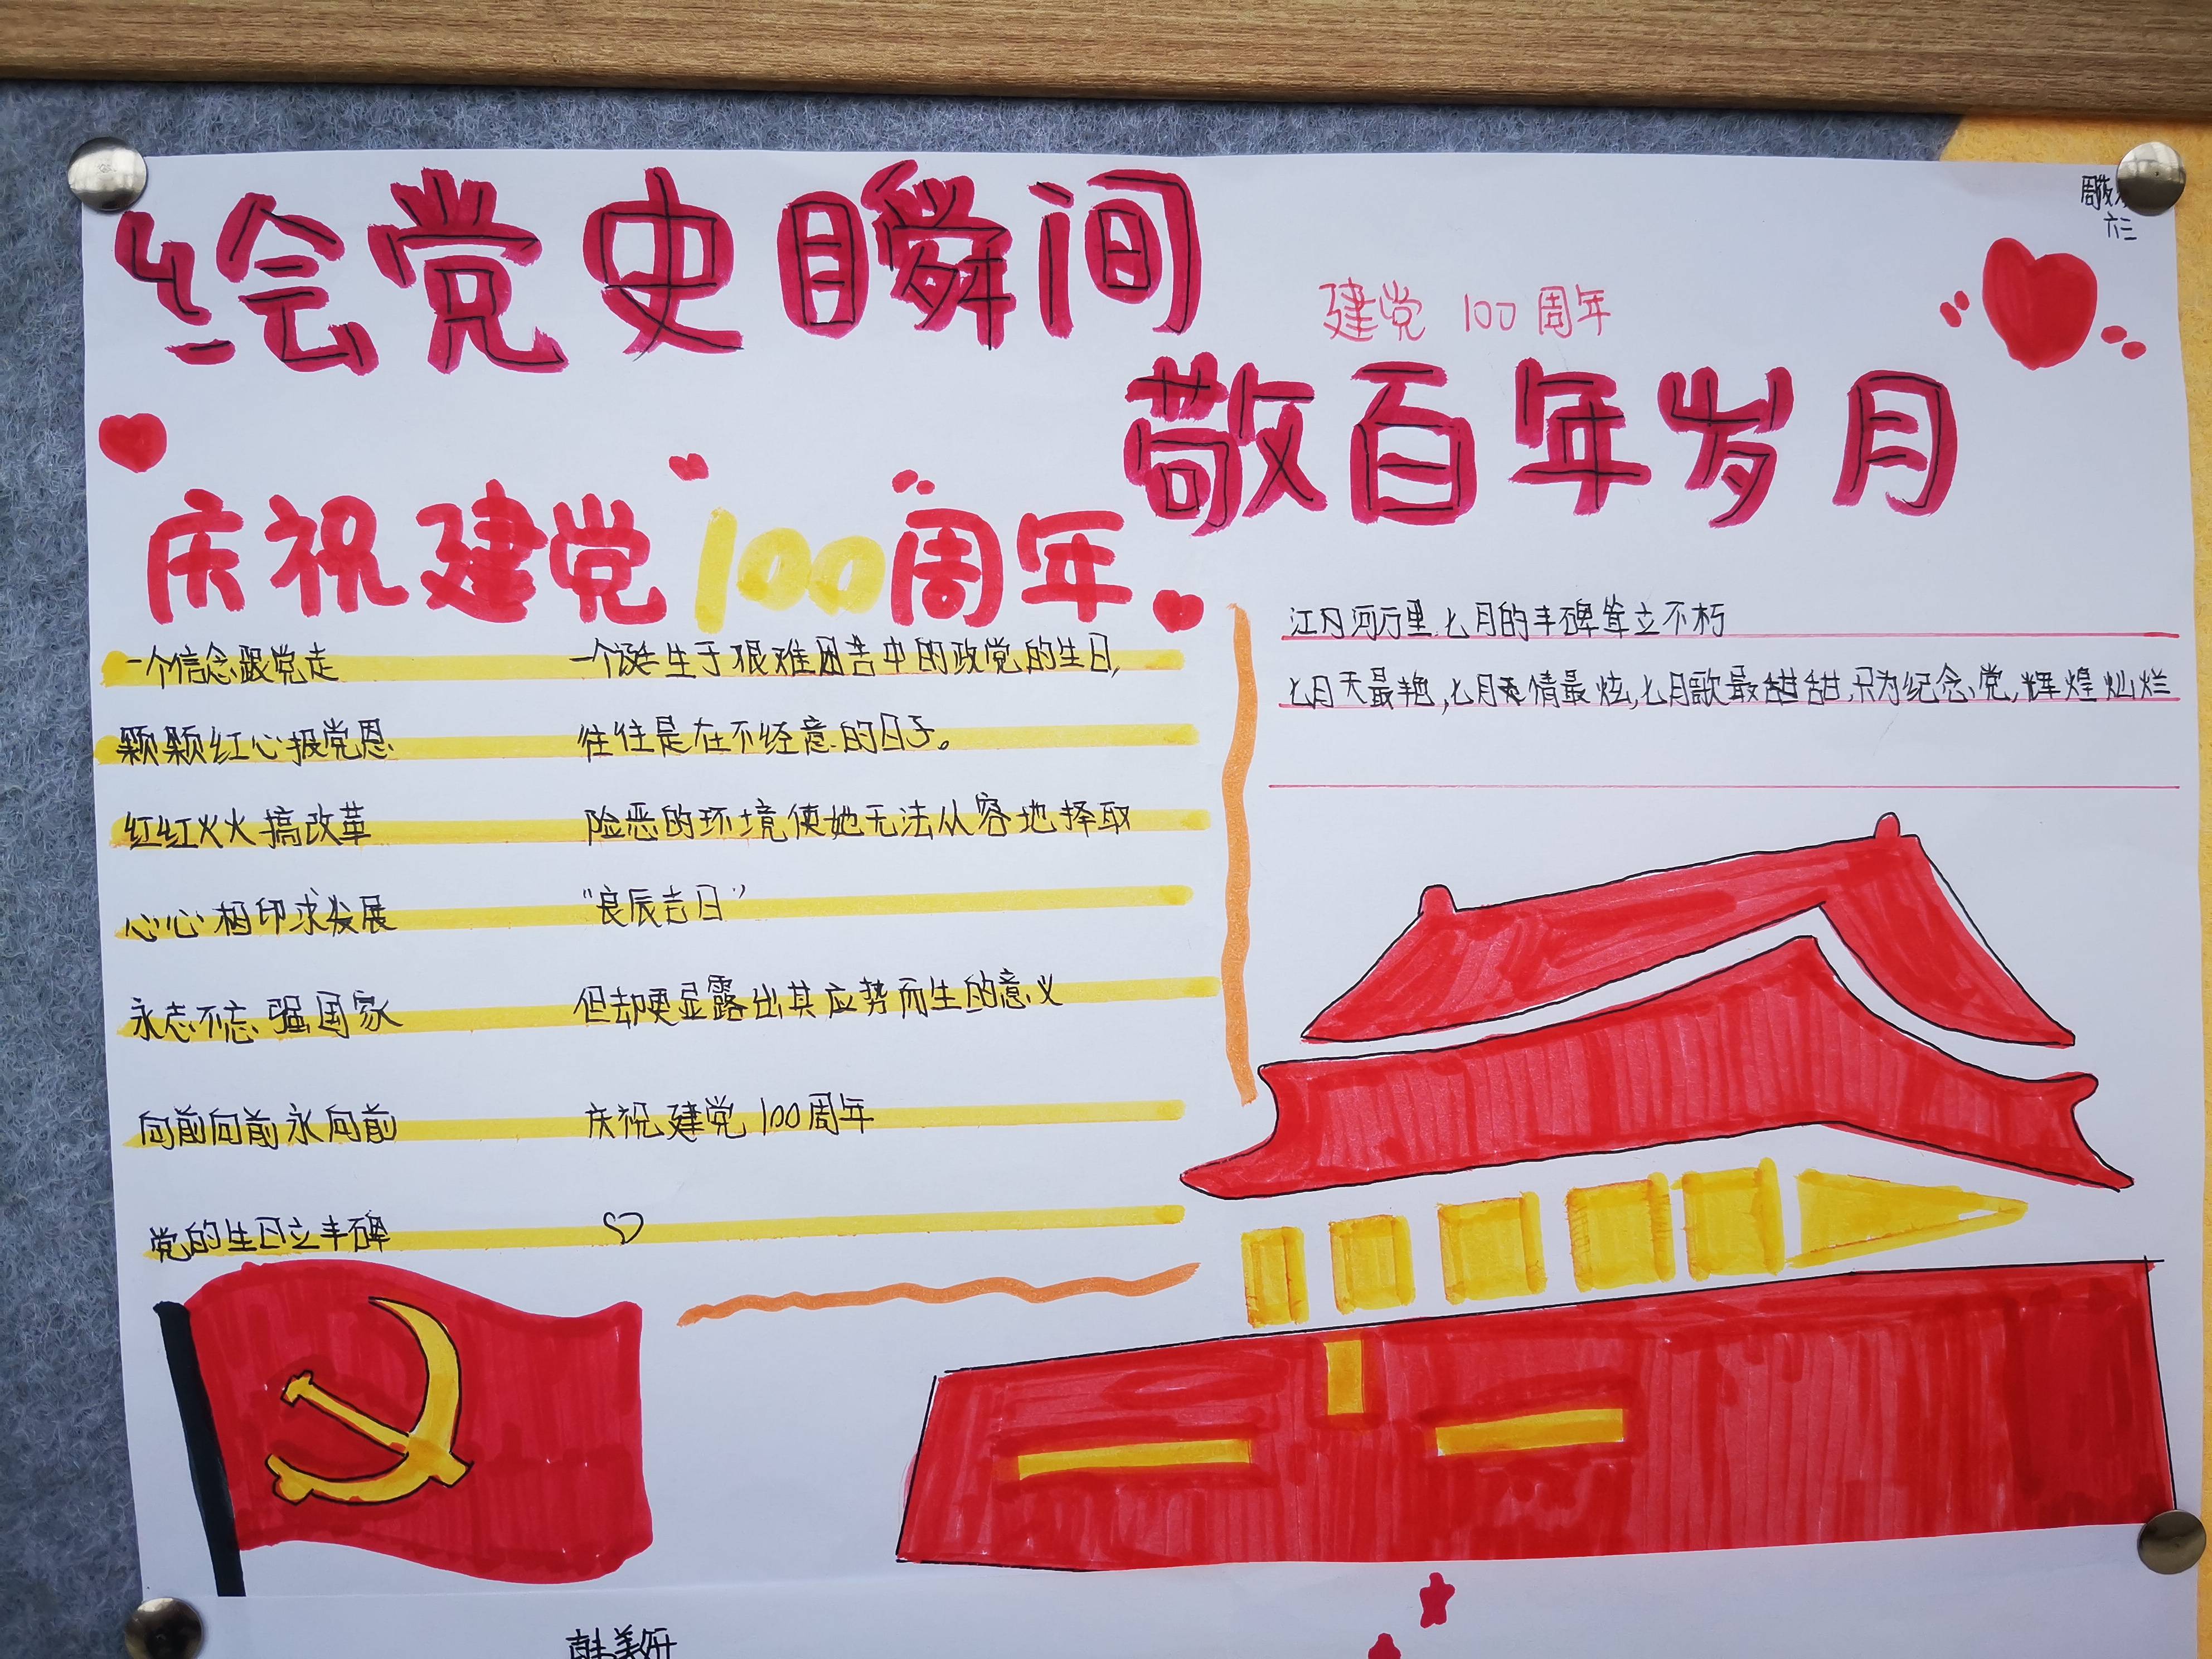 绘党史瞬间
六三
建党 100周年
敬百年岁月
庆祝建党100周年
一个信念跟党走
颗颗红心报党恩
红红火火搞改革
心心相印求发展
永志不忘强国家
向前向前永向前
党的生日立丰碑
一个诞生于艰难困苦中的政党的生日,
往往是在不经意的日子。
险恶的环境使她无法从容地择取
“良辰吉日”
但却更显露出其应势而生的意义
庆祝建党100周年
江月河万里,七月的丰碑耸立不朽
七月天最艳,七月情最炫,七月歌最甜甜,只为纪念党,辉煌灿烂
韩美妍